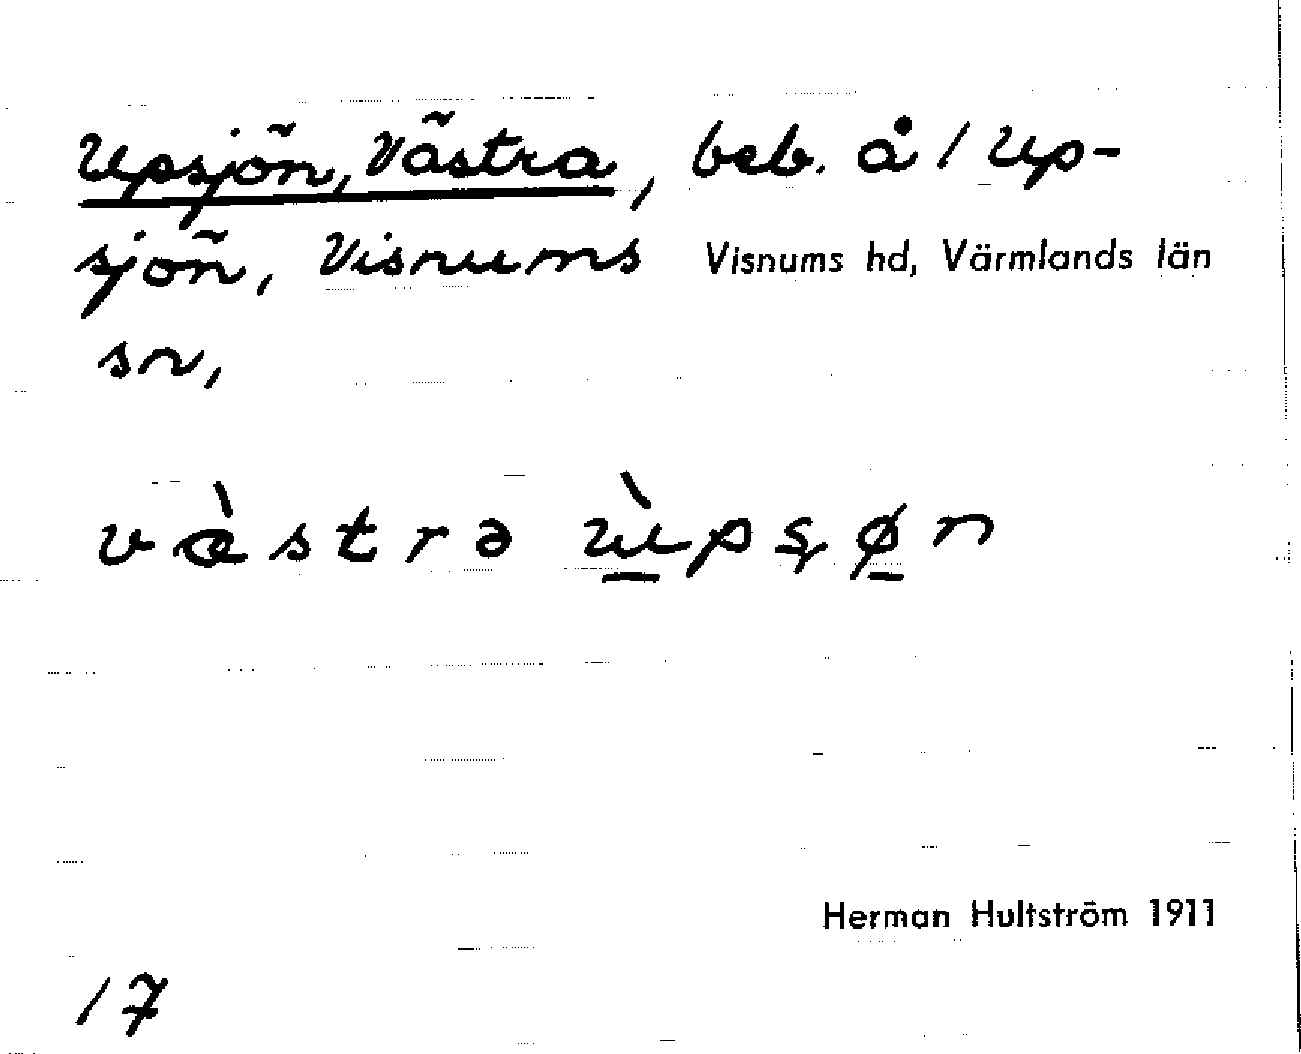 Upsjön, Västra, beb. å 1 Up-
sjön, Visnums Visnums hd, Värmlands län
sn,
væ̀strə ùpsøn
Herman Hultström 1911
17